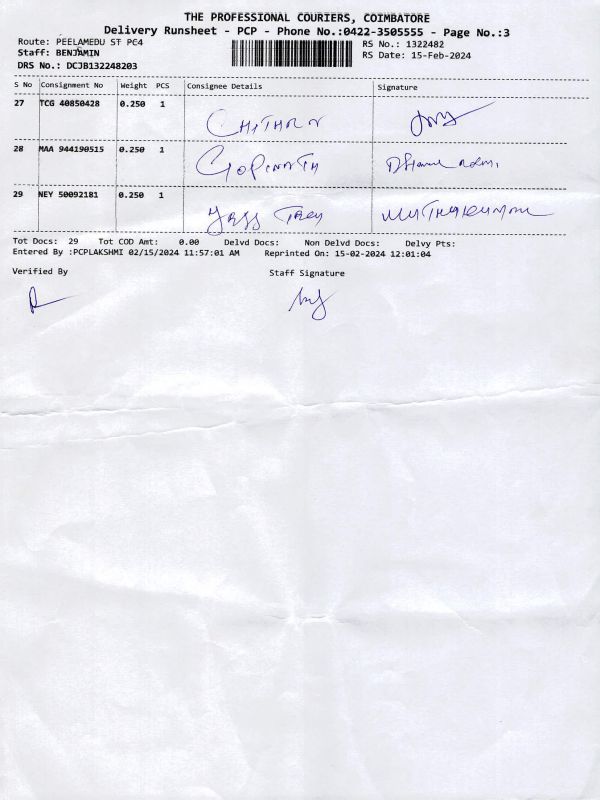 THE PROFESSIONAL COURIERS, COIMBATORE
Delivery Runsheet - PCP - Phone No.:0422-3505555 - Page No.:3
Route: PEELAMEDU ST PC4
RS No.: 1322482
Staff: BENJAMIN
RS Date: 15-Feb-2024
DRS No.: DCJB132248203
S No Consignment No Weight PCS Consignee Details Signature
27 TCG 40850428 0.250 1
28 MAA 944190515 0.250 1 GOPINATH
29 NEY 50092181 0.250 1
Tot Docs: 29 Tot COD Amt: 0.00 Delvd Docs: Non Delvd Docs: Delvy Pts:
Entered By :PCPLAKSHMI 02/15/2024 11:57:01 AM Reprinted On: 15-02-2024 12:01:04
Verified By Staff Signature